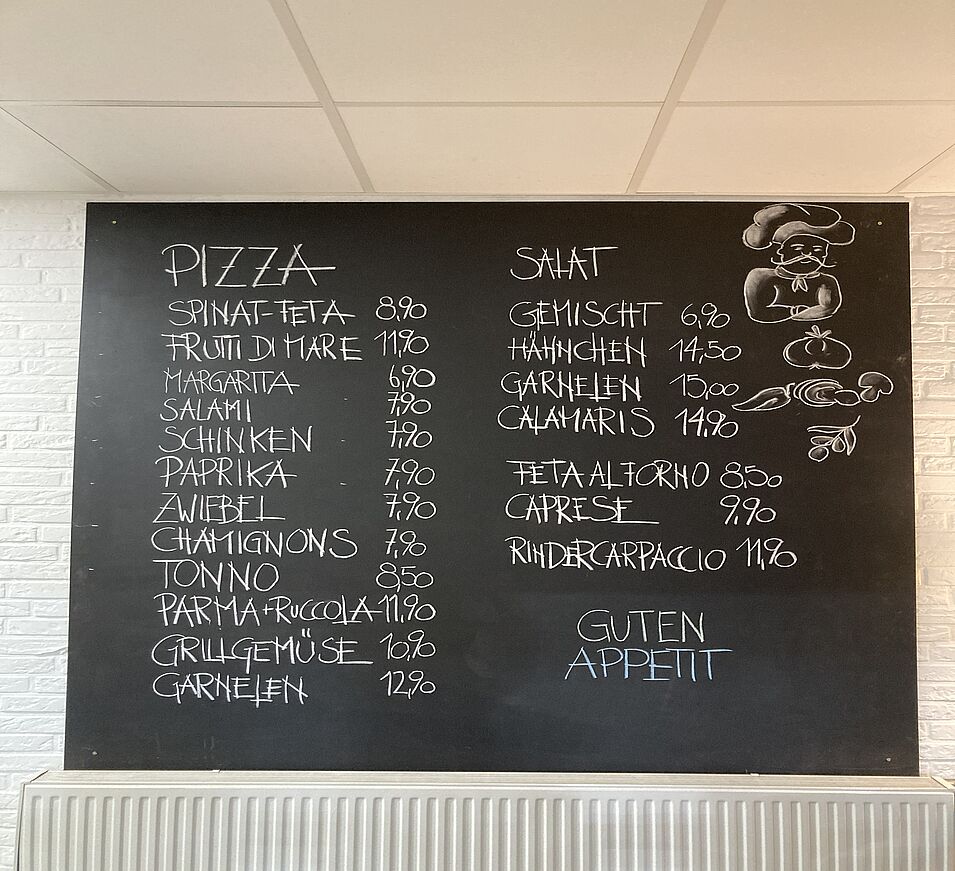 PIZZA
SPINAT-FETA 8,90
FRUTTI DI MARE 11,90
MARGARITA 6,90
SALAMI 7,90
SCHINKEN 7,90
PAPRIKA 7,90
ZWIEBEL 7,90
CHAMIGNONS 7,90
TONNO 8,50
PARMA+RUCCOLA 11,90
GRILLGEMÜSE 10,90
GARNELEN 12,90
SALAT
GEMISCHT 6,90
HÄHNCHEN 14,50
GARNELEN 15,00
CALAMARIS 14,90
FETA AL FORNO 8,50
CAPRESE 9,90
RINDERCARPACCIO 11,90
GUTEN
APPETIT